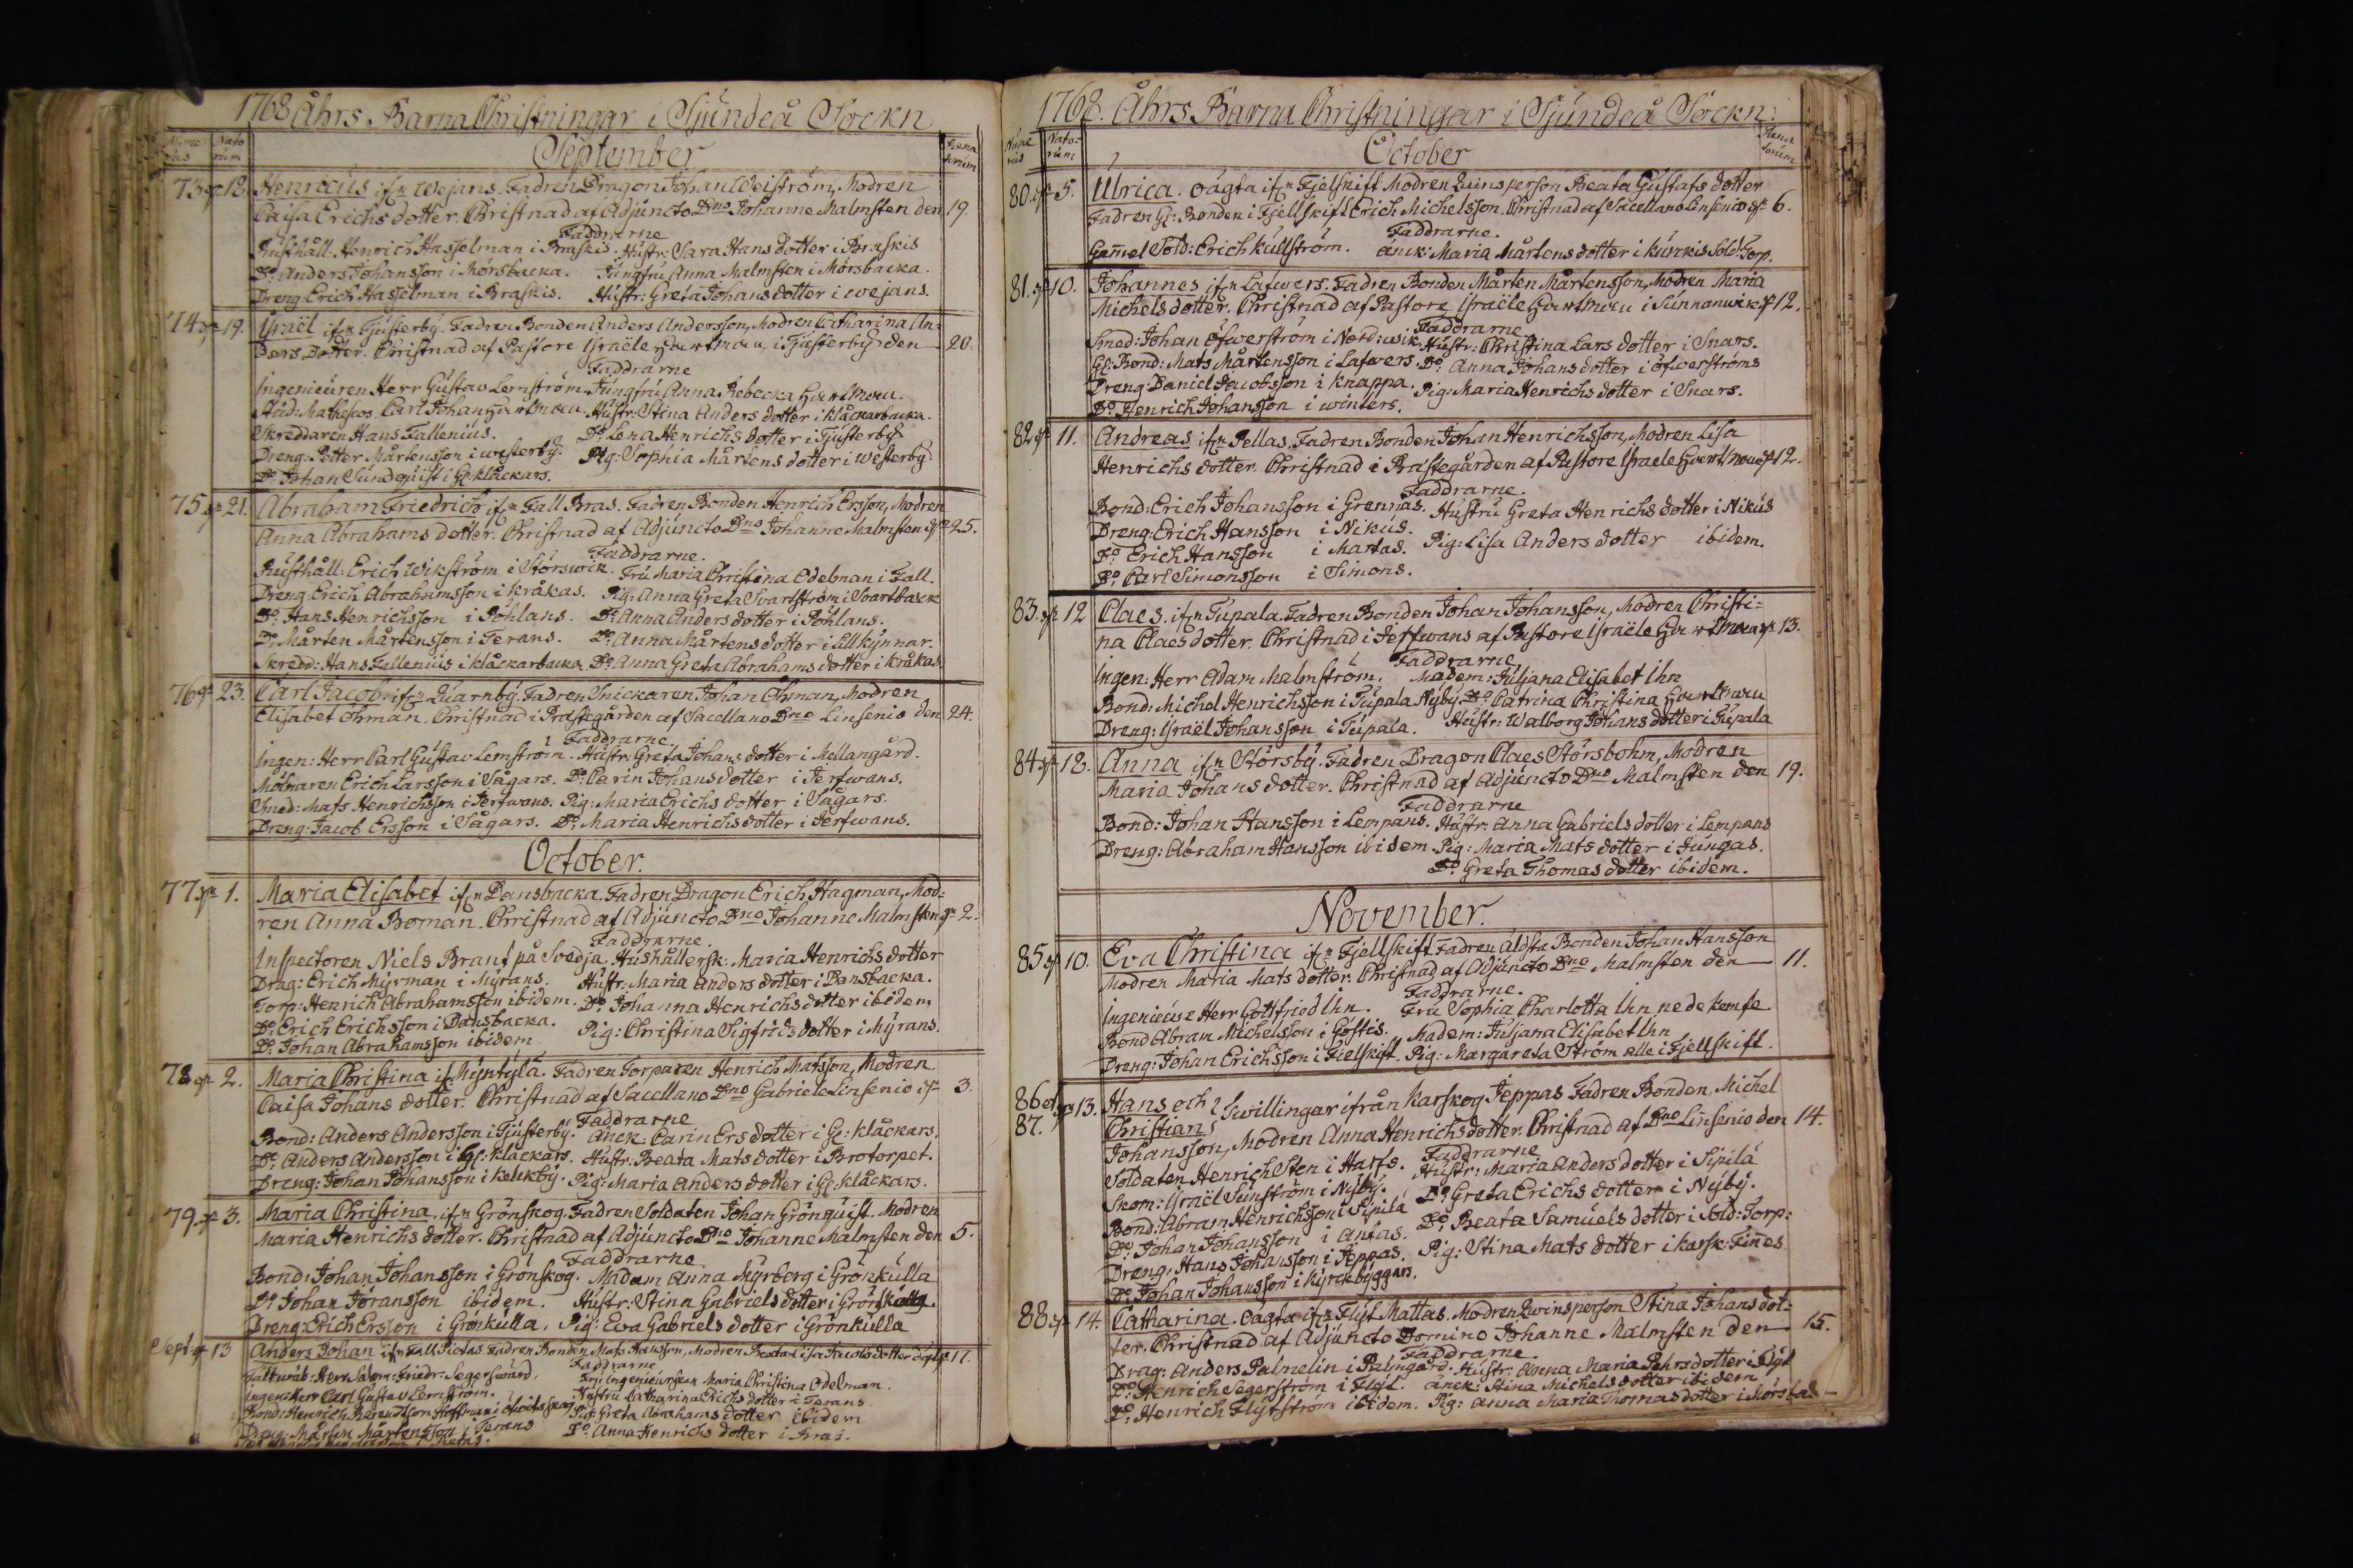 1768 Åhrs Barna Christningar i Sjundeå Sockn
Nume rus Nato rum September Rena torum
73. 18. Henricus ifn Wejans. Fadren Dragon Johan Weiström, Modren
Caisa Erichs dotter. Christnad af Adjuncto Dno Johanne Malmsten den 19.
Faddrarne
Rusthåll: Henrich Hasselman i Braskis. Hustr: Sara Hans dotter i Braskis
Do Anders Johansson i Mörsbacka. Jungfru Anna Malmsten i Mörsbacka.
Dreng: Erich Hasselman i Braskis. Hustr: Greta Johans dotter i Wejans.
74. 19. Israël ifn Tjusterby. Fadren Bonden Anders Andersson, Modren Catharina An:
ders Dotter. Christnad af Pastore Israële Hartman i Tjusterby den 20.
Faddrarne
Ingenieuren Herr Gustav Lemström. Jungfru Anna Rebecka Hartman.
Stud: Matheseos. Carl Johan Hartman. Hustr: Stina Anders dotter i Klåckarbacka.
Skreddaren Hans Fallenius. Do Lena Henrichs dotter i Tjusterby
Dreng: Petter Mårtensson i Westerby. Pig: Sophia Mårtens dotter i Westerby
Do Johan Sundquist i Gl klåckars.
75. 21. Abraham Friedrich ifn Fall Bras. Fadren Bonden Henrich Ersson, Modren
Anna Abrahams dotter. Christnad af Adjuncto Dno Johanne Malmsten 25.
Faddrarne.
Rusthåll: Erich Wikström i Störswik. Fru Maria Christina Edelman i Fall.
Dreng Erich Abrahamsson i Kråkas. Pig: Anna Greta Svartström i Svartback
Do. Hans Henrichsson i Pöhlans. Do. Anna Anders dotter i Pöhlans.
Do. Mårten Mårtensson i Terans. Do. Anna Mårtens dotter i Lillkynnar.
Skredd: Hans Fallenius i klåckarbacka. Do. Anna Greta Abrahams dotter i Kråkas
76. 23. Carl Jacob ifn Quarnby. Fadren Snickaren Johan Öhman, Modren
Elisabet Öhman. Christnad i Prästegården af Sacellano Dno Linsenio den 24.
Faddrarne.
Ingen: Herr Carl Gustav Lemström. Hustr. Greta Johans dotter i Mellangård.
Mölnaren Erich Larsson i Sågars. Do. Carin Johans dotter i Jerfwans.
Smed: Mats Henrichsson i Jerfwans. Pig: Maria Erichs dotter i Sågars.
Dreng: Jacob Ersson i Sågars. Do. Maria Henrichs dotter i Jerfwans.
October.
77. 1. Maria Elisabet ifn Dansbacka. Fadren Dragon Erich Hagman, Mod:
ren Anna Boman. Christnad af Adjuncto Dno Johanne Malmsten 2.
Faddrarne.
Inspectoren Niels Brant på Svedja. Hushållersk: Maria Henrichs dotter
Drag: Erich Myrman i Myrans. Hustr: Maria Anders dotter i Dansbacka.
Torp: Henrich Abrahamsson ibidem. Do. Johanna Henrichs dotter ibidem
Do. Erich Erichsson i Dansbacka. Pig: Christina Sigfrids dotter i Myrans.
Do. Johan Abrahamsson ibidem
78. 2. Maria Christina if Myntylä. Fadren Torparen Henrich Matsson, Modren
Caisa Johans dotter. Christnad af Sacellano Dno Gabriele Linsenio 3.
Faddrarne
Bond: Anders Andersson i Tjusterby. Änck: Carin Ers dotter i Gl: klåckars.
Do. Anders Andersson i Gl: klåckars. Hustr: Beata Mats dotter i Brotorpet.
Dreng: Johan Johansson i Kelkby. Pig: Maria Anders dotter i Gl: klåckars.
79. 3. Maria Christina. ifn Grönskog. Fadren Soldaten Johan Grönquist. Modren
Maria Henrichs dotter. Christnad af Adjuncto Dno Johanne Malmsten den 5.
Faddrarne
Bond: Johan Johansson i Grönskog. Madam Anna Myrberg i Grönkulla
Do Johan Jöransson ibidem. Hustr: Stina Gabriels dotter i Grönkulla.
Dreng: Erich Ersson i Grönkulla. Pig: Eva Gabriels dotter i Grönkulla
Sept 13 Anders Johan ifn Fall Pietas. Fadren Bonden Mats Hansson, Modren Beata Lisa Jacobs dotter 17.
Faddrarne
Fältwäb: Herr Salom: Friedr: Segersward. Fru Ingenieurskan Maria Christina Edelman.
Ingen: Herr Carl Gustav Lemström. Hustru Catharina Erichs dotter i Terans
Bond: Henrich Pig: Greta Abrahams dotter ibidem
Dreng: Mårten Mårtensson i Terans Do. Anna Henrichs dotter i Bras.
1768. Åhrs Barna Christningar i Sjundeå Sockn:
Nume rus Nato: rum October Rena torum
80. 5. Ulrica. oägta ifn Fjelskift Modren Quinsperson Beata Gustafs dotter
Fadren Gl: Bonden i Fjellskift Erich Michelsson. Christnad af Sacellano Linsenio 6.
Faddrarne.
Gammel Sold: Erich Kullström. änck: Maria Mårtens dotter i Kurkis Sold: Torp.
81. 10. Johannes ifn Lafwers. Fadren Bonden Mårten Mårtensson, Modren Maria
Michels dotter. Christnad af Pastore Israële Hartman i Sunnanwik 12.
Faddrarne
Smed: Johan Öfwerström i Nord:wik. Hustr: Christina Lars dotter i Snars.
Gl: Bond: Mats Mårtensson i Lafwers. Do. Anna Johans dotter i Öfwerströms
Dreng: Daniel Jacobsson i Knappa. Pig: Maria Henrichs dotter i Snars.
Do Henrich Johansson i Winters.
82. 11. Andreas ifn Pellas. Fadren Bonden Johan Henrichsson, Modren Lisa
Henrichs dotter. Christnad i Prästegården af Pastore Israele Hartman 12.
Faddrarne.
Bond: Erich Johansson i Grennas. Hustru Greta Henrichs dotter i Nikus
Dreng: Erich Hansson i Nikus. Pig: Lisa Anders dotter ibidem.
Do Erich Hansson i Martas.
Do. Carl Simonsson i Simons.
83. 12 Claes. ifn Tupala. Fadren Bonden Johan Johansson, Modren Christi:
na Claes dotter. Christnad i Jerfwans af Pastore Israële Hartman 13.
Faddrarne,
Ingen: Herr Adam Malmström. Madem: Juljana Elisabet Ihn
Bond: Michel Henrichsson i Tupala Nyby. Do Catrina Christina Hartman
Dreng: Israël Johansson i Tupala. Hustr: Walborg Johans dotter i Tupala
84. 18. Anna ifn Störsby. Fadren Dragon Claes Störsbohm, Modren
Maria Johans dotter. Christnad af Adjuncto Dno Malmsten den 19.
Faddrarne
Bond: Johan Hansson i Lempans. Hustr: Anna Gabriels dotter i Lempans
Dreng: Abraham Hansson ibidem. Pig: Maria Mats dotter i Jungas.
Do Greta Thomas dotter ibidem.
November.
85. 10. Eva Christina ifn Fjellskift Fadren äldsta Bonden Johan Hansson
Modren Maria Mats dotter. Christnad af Adjuncto Dno Malmsten den 11.
Faddrarne.
Ingenieur Herr Gottfriod Ihn. Fru Sophia Charlotta Ihn ne de Kemfe
Bond Abram Michelsson i Göstis. Madem: Juljana Elisabet Ihn
Dreng: Johan Erichsson i Fjelskift. Pig: Margareta Ström alle i Fjellskift.
86 et 13. Hans och Twillingar ifrån Karskog Jeppas Fadren Bonden Michel
87. Christian
Johansson, Modren Anna Henrichs dotter. Christnad af Dno Linsenio den 14.
Faddrarne
Soldaten Henrich Sten i Harfs. Hustr: Maria Anders dotter i Sipilä
Skom: Israël Sunström i Nyby. Do. Greta Erichs dotter i Nyby.
Bond: Abram Henrichsson i Sipilä Do. Beata Samuels dotter i Sold: Torp:
Do. Johan Johansson i Antas. Pig: Stina Mats dotter i Karsk: Finnes
Dreng: Hans Johansson i Jeppas.
Do. Johan Johansson i Kyrckbyggars.
88. 14. Catharina. oägta ifn Flyt Mattas. Modren Qwinsperson Stina Johans dot:
ter. Christnad af Adjuncto Domino Johanne Malmsten den 15.
Faddrarne.
Drag: Anders Palmelin i Palmgård. Hustr: Anna Maria Pehrs dotter i Flyt
Do. Henrich Segerström i Flyt. änck: Stina Michels dotter ibidem
Do. Henrich Flytström ibidem. Pig: Anna Maria Thomas dotter i Mörsba